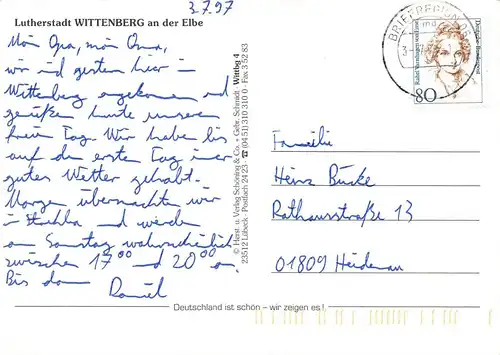 3.7.97
Lutherstadt WITTENBERG an der Elbe
Moin Opa, moin Oma,
wir sind gestern hier in
Wittenberg angekommen und
genießen heute unseren
freien Tag. Wir haben bis
auf den ersten Tag immer
gutes Wetter gehabt.
Morgen übernachten wir
in und werden
am Samstag wahrscheinlich
zwischen 17⁰⁰ und 20⁰⁰ an.
Bis dann Daniel
© Horst- u. Verlag Schöning & Co. • Gebr. Schmidt Wittbg 4
23512 Lübeck · Postfach 24 23 ☎ (04 51) 310 310 0 - Fax 3 52 83
BRIEFREGION 06
Deutsche Bundespost
80
Familie
Heinz Bücke
Rathausstraße 13
01809 Heidenau
Deutschland ist schön – wir zeigen es!